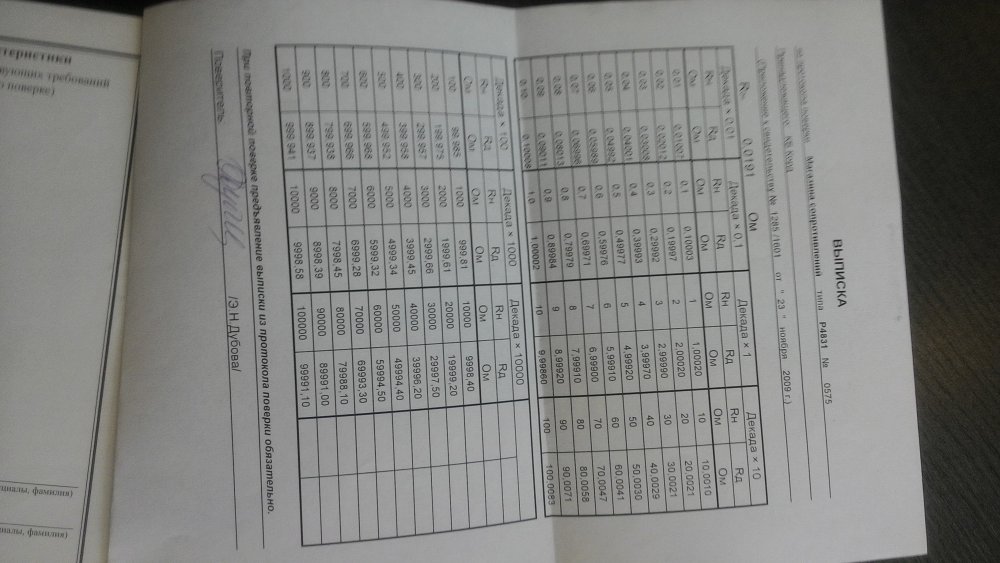 ВЫПИСКА
из протокола поверки Магазина сопротивлений типа Р4831 № 0575
Принадлежащего КБ Корд
(Приложение к свидетельству № 1285 /1601 от " 23 " ноября 2009 г.)
R₀ 0,0191 Ом
Декада × 0,01 Декада × 0,1 Декада × 1 Декада × 10
Rн Rд Rн Rд Rн Rд Rн Rд
Ом Ом Ом Ом Ом Ом Ом Ом
0,01 0,01007 0,1 0,10003 1 1,00020 10 10,0010
0,02 0,02012 0,2 0,19997 2 2,00020 20 20,0021
0,03 0,03009 0,3 0,29992 3 2,99990 30 30,0021
0,04 0,04001 0,4 0,39993 4 3,99970 40 40,0029
0,05 0,04992 0,5 0,49977 5 4,99920 50 50,0030
0,06 0,05989 0,6 0,59976 6 5,99910 60 60,0041
0,07 0,06996 0,7 0,69971 7 6,99900 70 70,0047
0,08 0,08013 0,8 0,79979 8 7,99910 80 80,0058
0,09 0,09011 0,9 0,89984 9 8,99920 90 90,0071
0,10 0,10009 1,0 1,00002 10 9,99860 100 100,0083
Декада × 100 Декада × 1000 Декада × 10000
Rн Rд Rн Rд Rн Rд
Ом Ом Ом Ом Ом Ом
100 99,985 1000 999,81 10000 9998,40
200 199,975 2000 1999,61 20000 19999,20
300 299,967 3000 2999,66 30000 29997,50
400 399,958 4000 3999,45 40000 39996,20
500 499,952 5000 4999,34 50000 49994,40
600 599,968 6000 5999,32 60000 59994,50
700 699,966 7000 6999,28 70000 69993,30
800 799,938 8000 7998,45 80000 79988,10
900 899,937 9000 8998,39 90000 89991,00
1000 999,941 10000 9998,58 100000 99991,10
При повторной поверке предъявление выписки из протокола поверки обязательно.
Поверитель /Э.Н.Дубова/
теристики
вующих требований
о поверке)
циалы, фамилия)
циалы, фамилия)